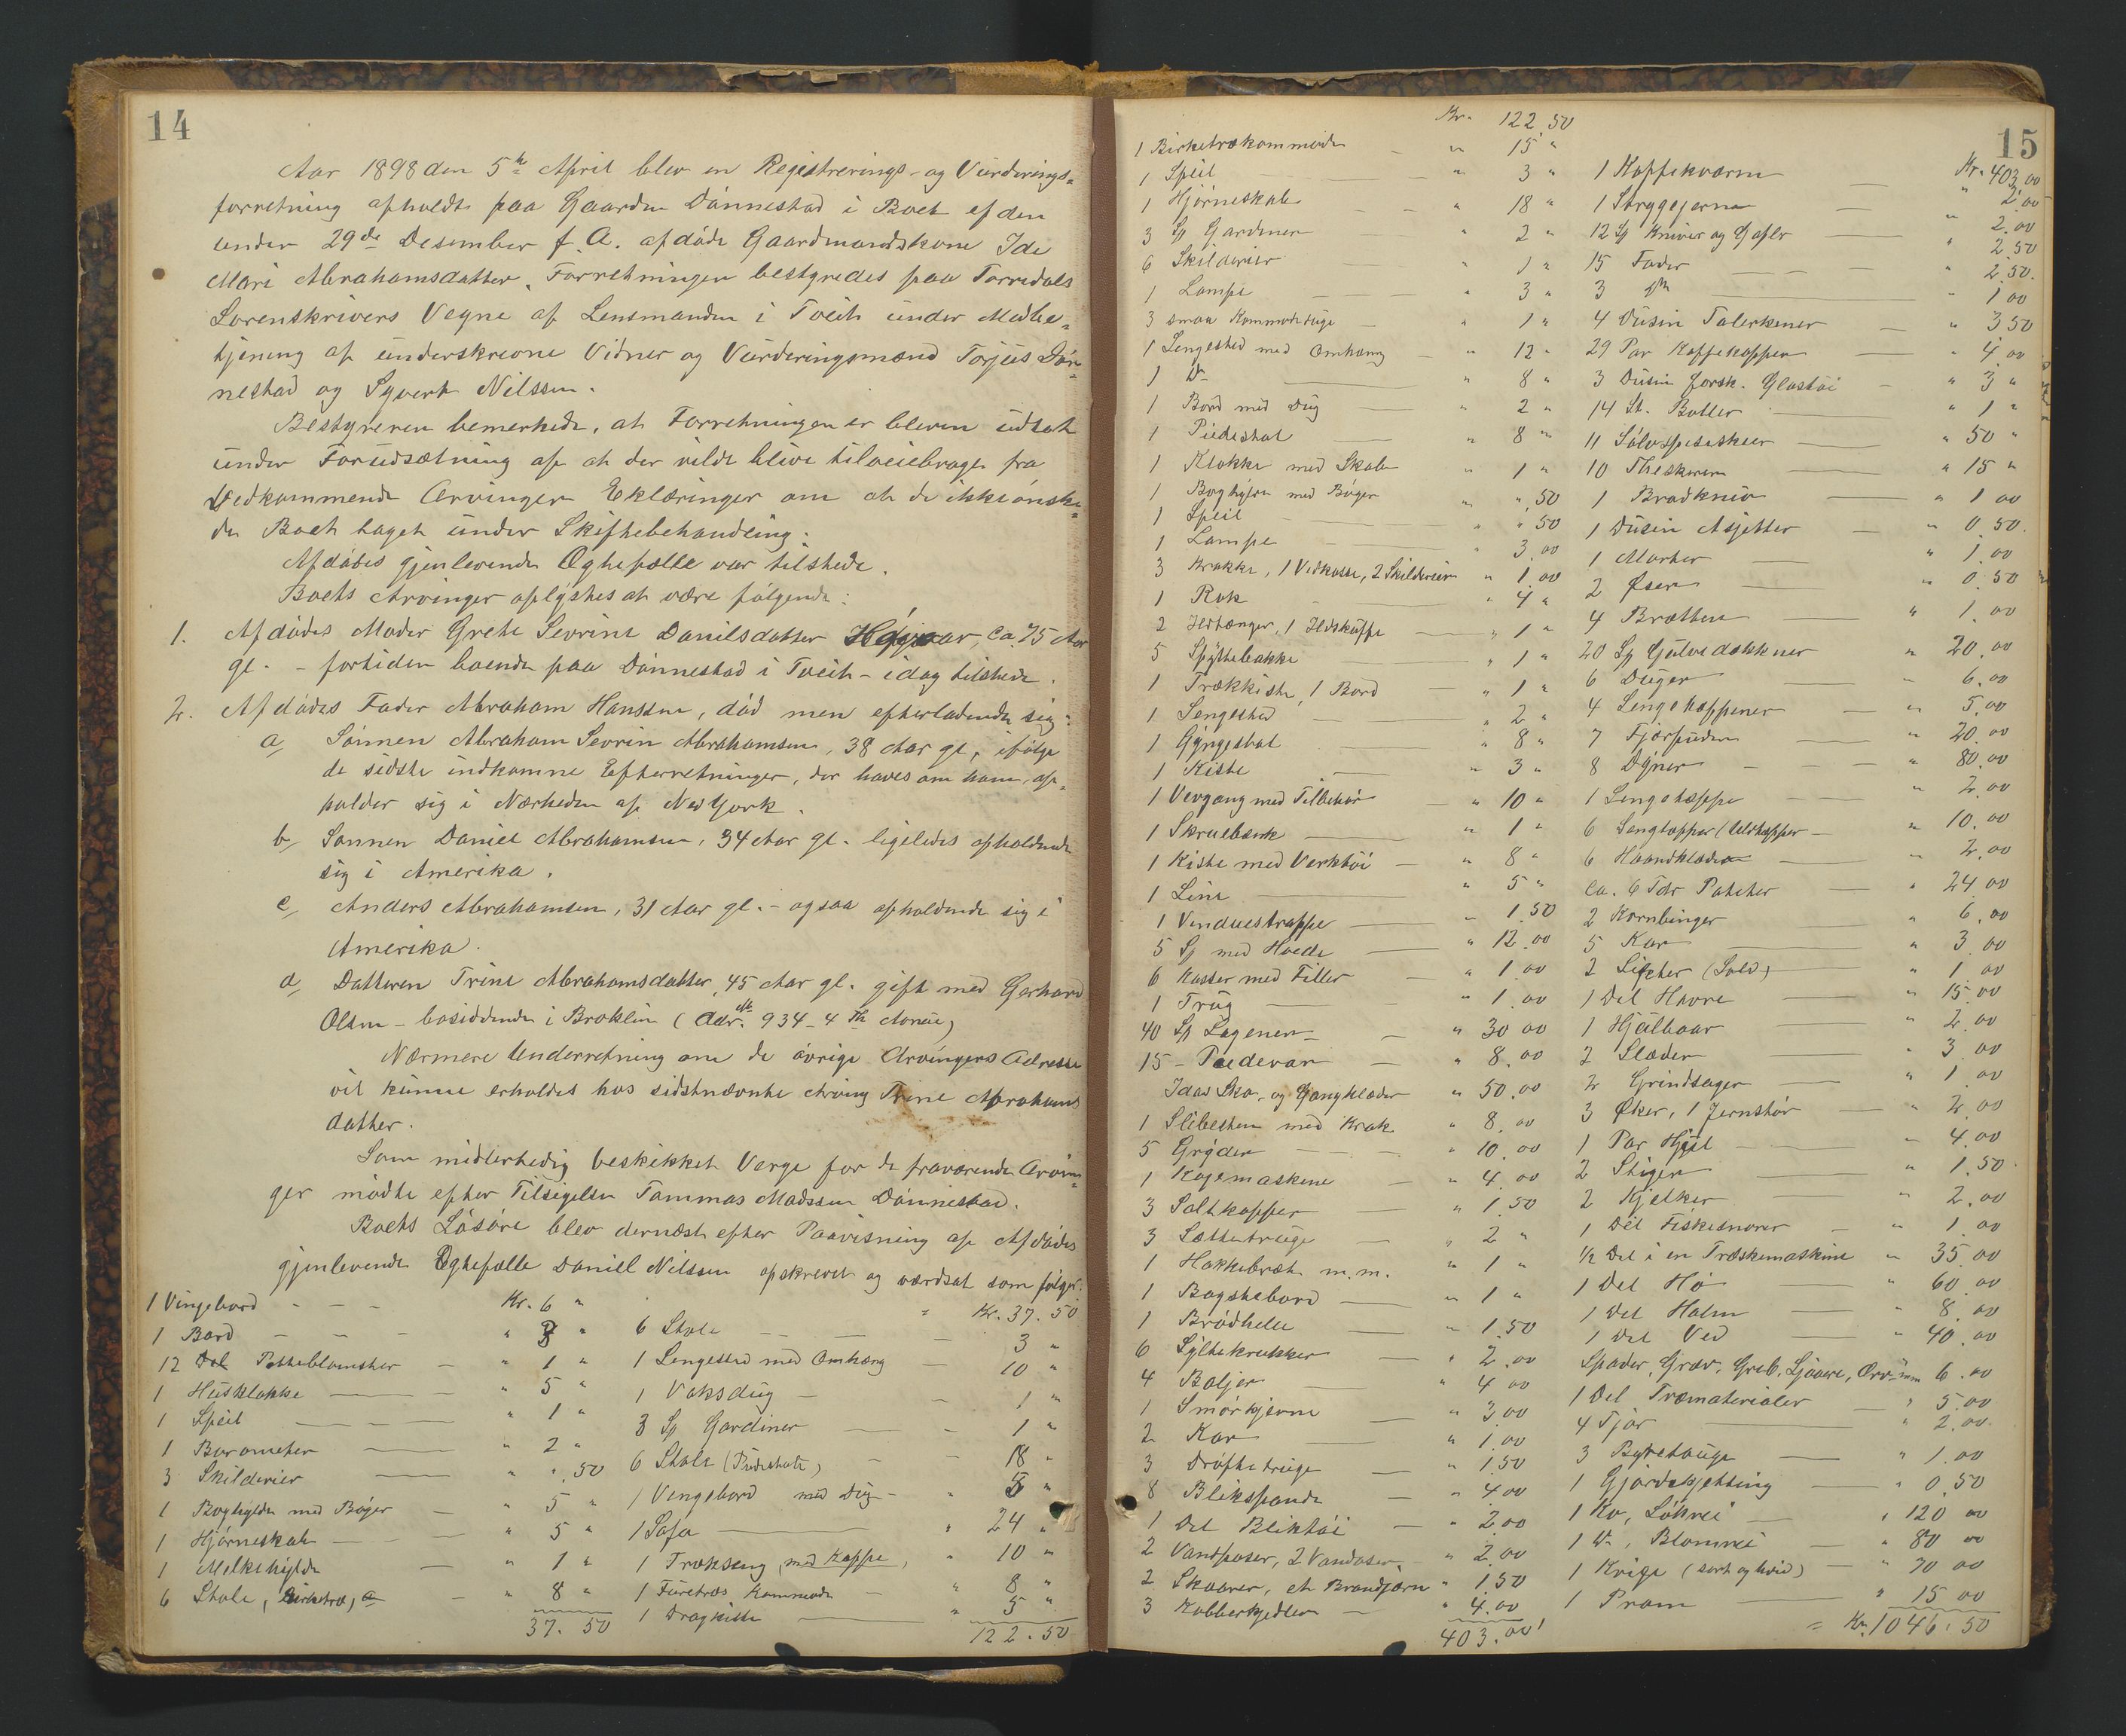 14
Aar 1898 den 5te April blev en Registrerings- og Vurderings-
forretning afholdt paa Gaarden Dönnestad i Boet ef den
under 29de Desember f. A. afdöde Gaardmandskone Ide
Mari Abrahamsdatter. Forretningen bestyredes paa Torredals
Sorenskrivers Vegne af Lensmanden i Tveit under Medbe-
tjening af underskrevne Vidner og Vurderingsmænd Torjus Dön-
nestad og Syvert Nilssen.
Bestyreren bemerkede, at Forretningen er bleven udsat
under Forudsætning af at der vilde blive tilveiebragt fra
Vedkommende Arvinger Eklæringer om at de ikke önske-
de Boet taget under Skiftebehandling.
Afdödes gjenlevende Ægtefælle var tilstede.
Boets Arvinger oplystes at være fölgende:
1. Afdödes Moder Grete Sevrine Danilsdatter ca. 75 Aar
gl. - fortiden boende paa Dönnestad i Tveit - idag tilstede.
2. Afdödes Fader Abraham Hanssen, död men efterladende sig:
a, Sönnen Abraham Sevrin Abrahamsen, 38 Aar gl, ifölge
de sidste indkomne Efterretninger, der haves om ham, op-
holder sig i Nærheden af New York.
b, Sönnen Daniel Abrahamsen, 34 Aar gl. ligeledes opholdende
sig i Amerika.
c, Anders Abrahamsen, 31 Aar gl. - ogsaa opholdende sig i
Amerika.
d, Datteren Trine Abrahamsdatter, 45 Aar gl. gift med Gerhard
Olsen - bosiddende i Broklin (Adr. 934 - 4 Th Avnue)
Nærmere Underretning om de övrige Arvingers Adresse
vil kunne erholdes hos sidstnævnte Arving Trine Abrahams
datter.
Som midlertidig beskikket Verge for de fraværende Arvin-
ger mödte efter Tilsigelse Tommas Madssen Dönnestad.
Boets Lösöre blev dernæst efter Paavisning af Afdödes
gjenlevende Ægtefælle Daniel Nilssen opskrevet og værdsat som fölger:
1 Vingebord - - - Kr. 6 "
1 Bord - - - " 3 "
12 Potteblomster - " 1 "
1 Husklokke - " 5 "
1 Speil - " 1 "
1 Barometer - " 2 "
3 Skilderier " " 50
1 Boghylde med Böger - " 5 "
1 Hjörneskab - " 5 "
1 Melkehylde - " 1 "
6 Stole, birketræ, - " 8 "
37. 50
= Kr. 37. 50
6 Stole - 3 "
1 Sengested med Omhæng - 10 "
1 Voksdug - 1 "
3 Sp Gardiner - 1 "
6 Stole (Pudestole) - 18 "
1 Vingebord med Dug - " 5 "
1 Sofa - " 24 "
1 Trækseng, med Kappe, " 10 "
1 Furetræs Kommode - " 8 "
1 Dragkiste - " 5 "
122. 50
15
Kr. 122.50
1 Birketrækommode - " 15 "
1 Speil - " 3 "
1 Hjörneskab - " 18 "
3 Sp Gardiner - " 2 "
6 Skilderier - " 1 "
1 Lampe - " 3 "
3 smaa Kommodeduge - " 1 "
1 Sengested med Omhæng - " 12 "
1 Do - " 8 "
1 Bord med Dug - " 2 "
1 Piedestal - " 8 "
1 Klokke med Skab " 1 "
1 Boghylde med Böger " " 50
1 Speil " " 50
1 Lampe " 3.00
3 Krakke, 1 Vedkasse, 2 Skilderier " 1.00
1 Rok " 4 "
2 Ildtænger, 1 Ildskuffe - " 1 "
5 Spyttebakke " 1 "
1 Trækkiste, 1 Bord - " 1 "
1 Sengested - " 2 "
1 Gyngestol " 8 "
1 Kiste - " 3 "
1 Vevgang med Tilbehör " 10 "
1 Skruebenk - " 1 "
1 Kiste med Verktöi - " 8 "
1 Line - " 5 "
1 Vinduestrappe - " 1.50
5 Sp med Hvede - " 12.00
6 Kasser med Filler - " 1.00
1 Trug - " 1.00
40 Sp Lagener - " 30 00
15 - Pudevar - " 8.00
Idas Sko- og Gangklæder " 50.00
1 Slibesten med Krak " 8.00
5 Gryder - " 10.00
1 Kogemaskine - " 4.00
3 Saltkopper - " 1.50
3 Sættetruge - " 2 "
1 Hakkebræt m.m. - " 1 "
1 Bagstebord - " 1 "
1 Brödhelle - " 1.50
6 Syltekrukker - " 2.00
4 Baljer - " 4 00
1 Smörkjerne - " 3,00
2 Kar - " 1.00
3 Dröftetruge - " 1.50
8 Blikspande - " 4.00
1 Del Bliktöi - " 2.00
2 Vandposer, 2 Vandöser, " 2.00
2 Skaarer, et Brandjærn " 1.50
3 Kobberkjedler - " 4.00
403.00
Kr. 403,00
1 Kaffekværn - " 2,00
1 Strygejern - " 2.00
12 Sp Kniver og Gafler - " 2.50
15 Fader - " 2.50.
3 Do - " 1 00
4 Dusin Talerkener - " 3 50
29 Par Kaffekopper - " 4 00
3 Dusin forsk. Glastöi - " 3 "
14 St. Botler - " 1 "
11 Sölvspiseskeer - " 50 "
10 Theskeer - " 15 "
1 Brödkniv - " 1 00
1 Dusin Asjetter - " 0.50.
1 Morter - " 1.00
2 Øser - " 0.50
4 Brætter - " 1.00
20 Sp Gulvedækkner " 20.00
6 Duger - " 6.00
4 Sengekapper - " 5.00
7 Fjærpuder - " 20.00
8 Dyner - " 80.00
1 Sengetæppe - " 2.00
6 Sengtæpper (Uldtæpper - " 10.00
6 Haandklæder - " 2.00
ca. 6 Tdr Poteter - " 24 00
2 Kornbinger " 6.00
5 Kar - " 3.00
2 Sigter (Sold) - " 1 00
1 Del Havre - " 15.00
1 Hjülbaar - " 2.00
2 Slæder - " 3.00
2 Grindsager - " 1.00
3 Øker, 1 Jernstör - " 2.00
1 Par Hjül - " 4.00
2 Stiger - " 1.50.
2 Kjelker - " 2.00
1 Del Fiskesnorer - " 1.00
1/2 Del i en Træskemaskine " 35.00
1 Del Hö - " 60.00
1 Del Halm - " 8.00
1 Del Ved - " 40.00
Spader, Græv, Greb, Ljaaer, 6.00
1 Del Træmaterialer - " 5.00
4 Tjor " 2.00.
3 - " 1.00
1 Gjordekjetting - " 0.50
1 Ko, Lökrei - " 120 00
1 Do, Blomrei - " 80 00
1 Kvige (sort og hvid) - " 70 00
1 Pram - " 15 00
= Kr. 1046.50